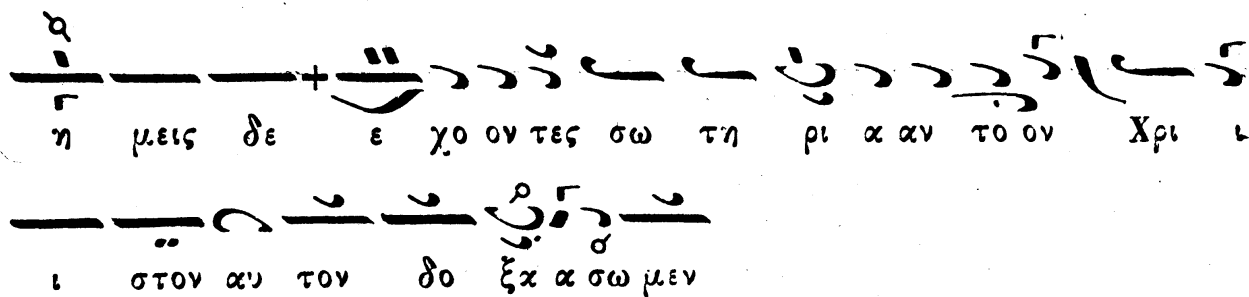 η μεις δε ε χο ον τες σω τη ρι α αν το ον Χρι ι
ι στον αυ τον δο ξα α σω μεν